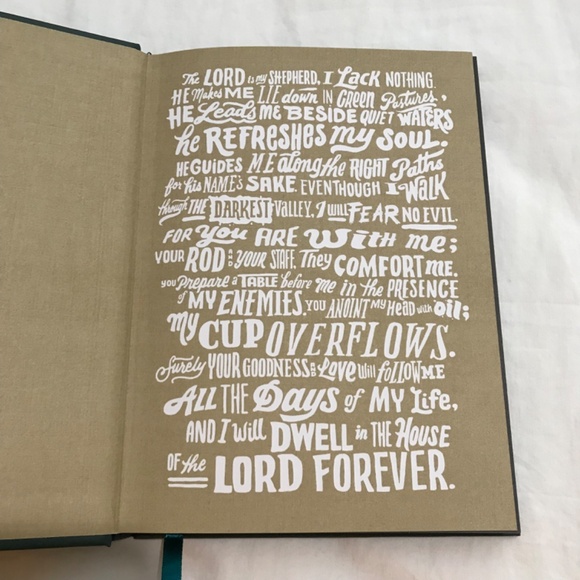 The LORD is my SHEPHERD, I Lack NOTHING.
HE Makes ME LIE down IN GREEN Pastures,
HE Leads ME BESIDE QUIET WATERS
he REFRESHES my SOUL.
HE GUIDES ME along the RIGHT Paths
for his NAME'S SAKE. EVEN THOUGH I WALK
through THE DARKEST VALLEY, I WILL FEAR NO EVIL.
FOR you ARE With me;
YOUR ROD AND YOUR STAFF, They COMFORT ME.
YOU Prepare a TABLE before me in the PRESENCE
of MY ENEMIES. YOU ANOINT MY HEAD with OIL;
my CUP OVERFLOWS.
Surely YOUR GOODNESS AND Love Will follow ME
ALL THE Days of MY Life,
AND I Will DWELL in THE HOUSE
OF the LORD FOREVER.